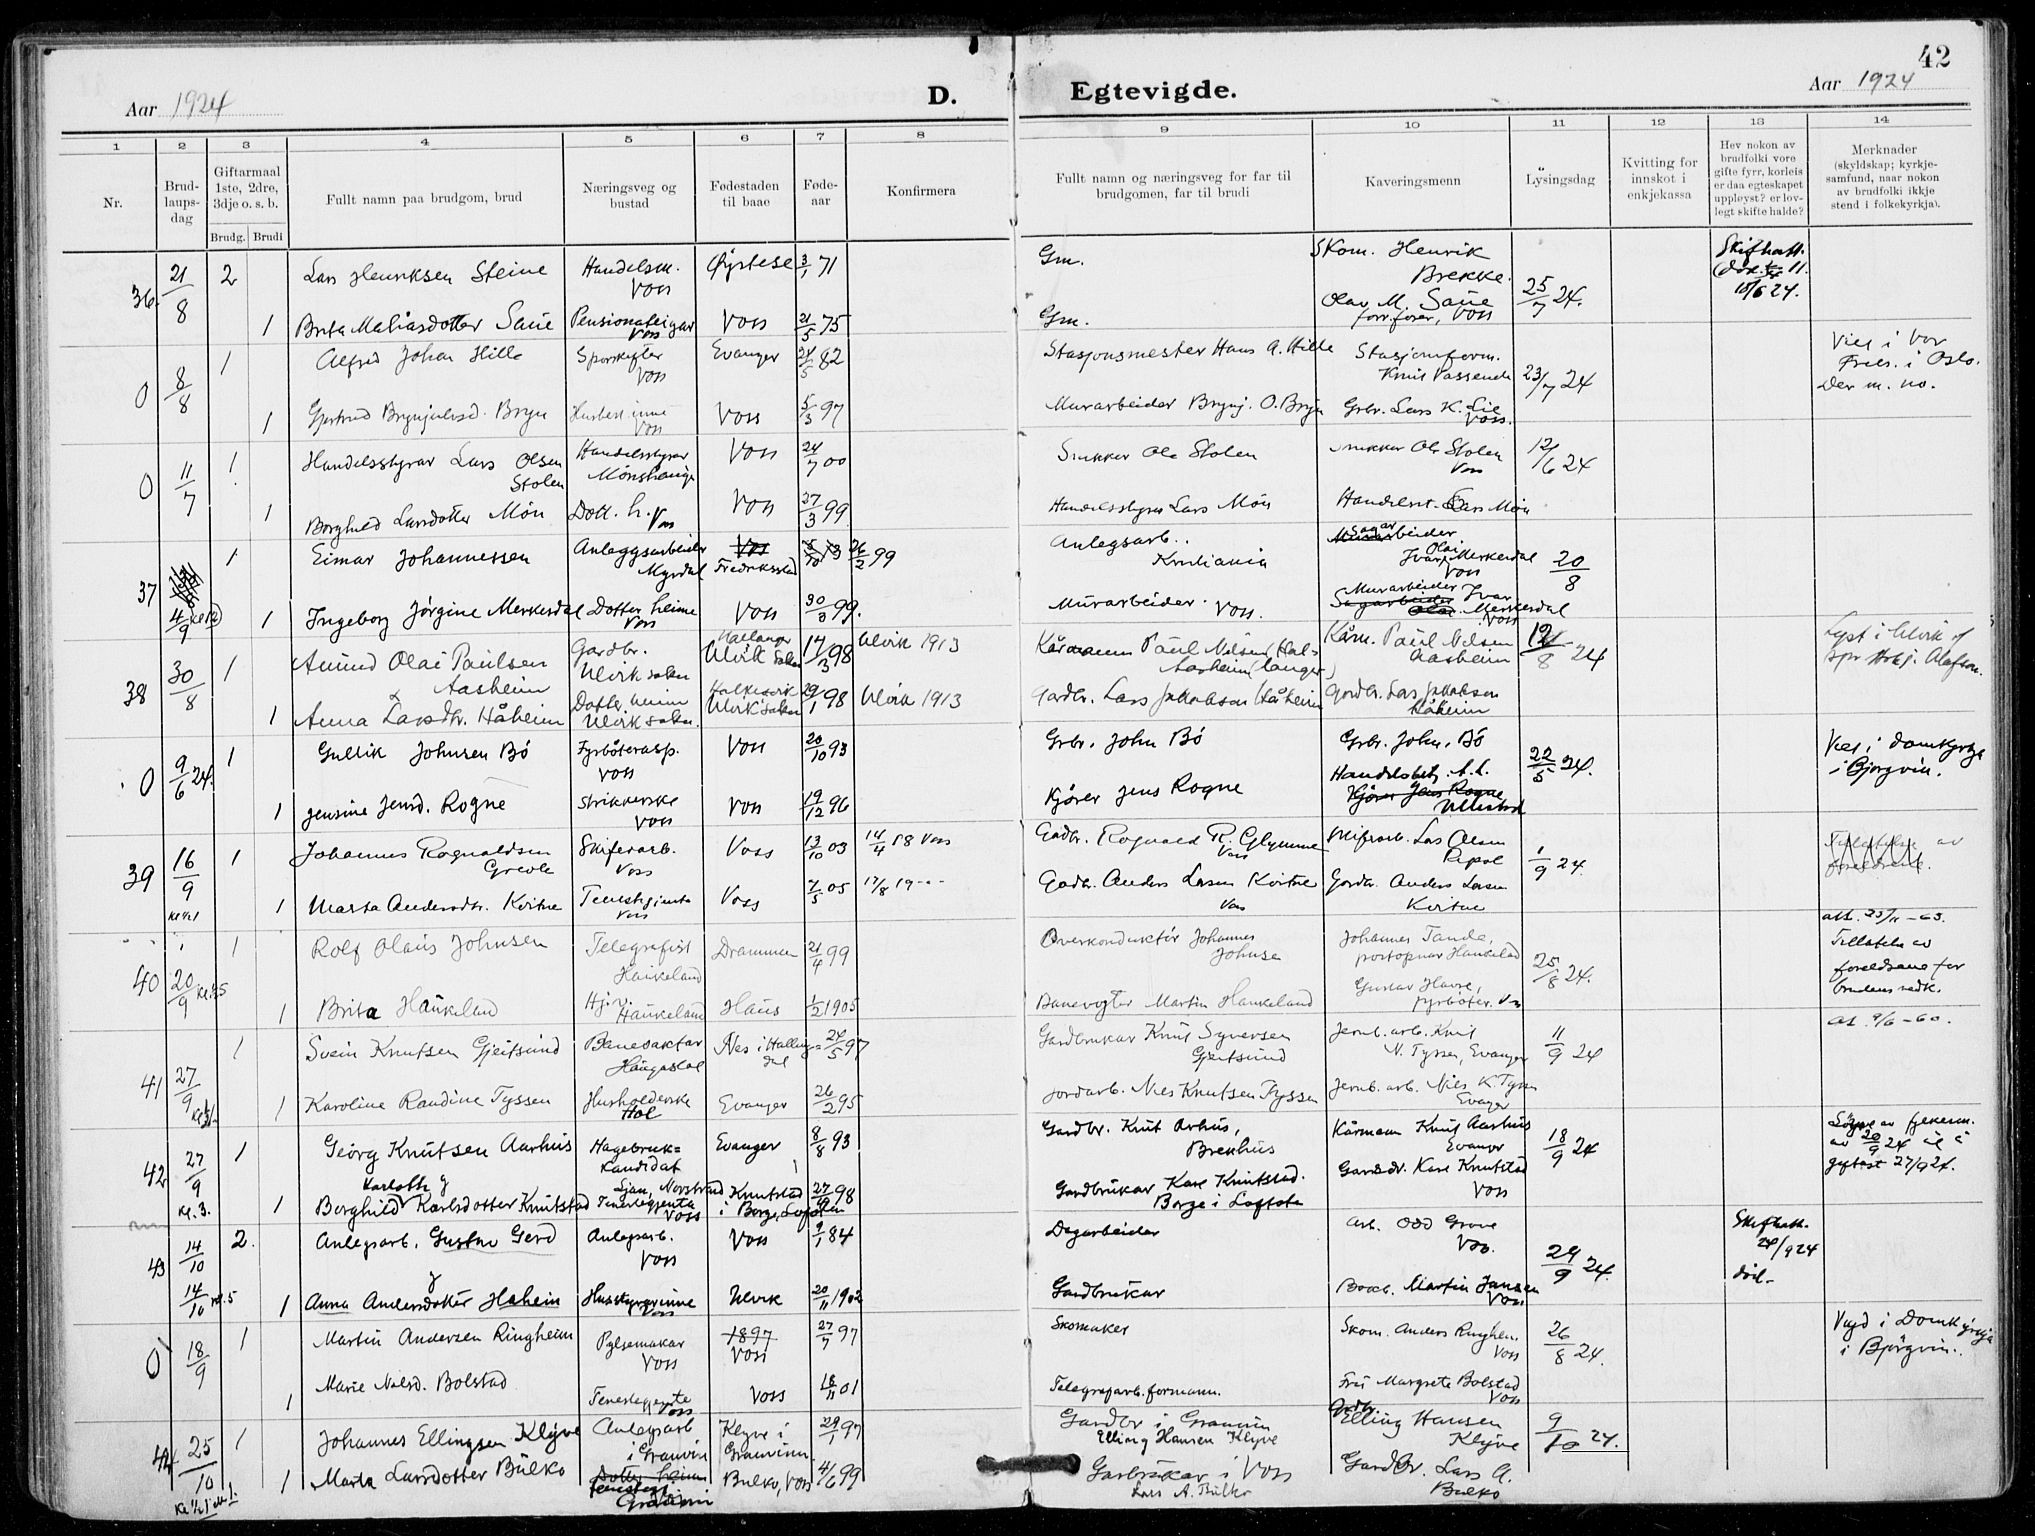 42
Aar 1924
D.
Egtevigde.
Aar 1924
1 2 3 4 5 6 7 8 9 10 11 12 13 14
Nr.
Brud-
laups-
dag
Giftarmaal
1ste, 2dre,
3dje o. s. b.
Brudg. Brudi
Fullt namn paa brudgom, brud
Næringsveg og
bustad
Fødestaden
til baae
Føde-
aar
Konfirmera
Fullt namn og næringsveg for far til
brudgomen, far til brudi
Kaveringsmenn
Lysingsdag
Kvitting for
innskot i
enkjekassa
Hev nokon av
brudfolki vore
gifte fyrr, korleis
er daa egteskapet
uppløyst? er lov-
legt skifte halde?
Merknader
(skyldskap; kyrkje-
samfund, naar nokon
av brudfolki ikkje
stend i folkekyrkja).
36. 21/8 2 Lars Henriksen Steine Handelsm. Voss Øystese 3/1 71 Gm. Skom. Henrik Brekke. 25/7 24. Skifteatt. 10/6 24.
1 Brita Matiasdotter Saue Pensionateigar Voss Voss 21/5 75 Gm. Olav M. Saue forr.fører, Voss
0 8/8 1 Alfred Johan Hille Sporskifter Voss Evanger 24/5 82 Stasjonsmester Hans A. Hille Stasjonsform. Knut Vassenden 23/7 24 Viet i Vor Frels. i Oslo.
1 Gjertrud Brynjulvsd. Bryn Voss Voss 5/3 97 Murarbeider Brynj. O. Bryn Grbr. Lars K. Lie Voss.
0 11/7 1 Handelsstyrar Lars Olsen Stolen Handelsstyrar Voss 24/7 00 Snikker Ole Stolen Snikker Ole Stolen Voss 12/6 24
1 Borghild Larsdotter Møn Dott. h. Voss Voss 27/3 99 Handelsstyrar Lars Møn Handelsst. Lars Møn
37 4/9 1 Eimar Johannessen Anleggsarbeider Myrdal Fredrikstad 26/2 99 Anlegsarb. Kristiania Sagarbeider Olai Merkesdal Voss 20/8
1 Ingeborg Jørgine Merkesdal Dotter heime Voss Voss 30/3 99. Murarbeider. Voss. Murarbeider Ivar Merkesdal Voss
38 30/8 1 Amund Olai Paulsen Aasheim Gardbr. Ulvik sokn Hallanger Ulvik sokn 17/3 98 Ulvik 1913 Kårmann Paul Nilsen Aasheim (Hallanger) Kårm. Paul Nilsen Aasheim 12/8 24 Lyst i Ulvik
1 Anna Larsdtr. Håheim Dotter heime Ulvik sokn. Ulvik sokn 29/1 98 Ulvik 1913 Gardbr. Lars Jakobson Håheim Gardbr. Lars Jakobson Håheim
0 9/6 24. 1 Gullik Johnsen Bø Fyrbøterasp. Voss Voss 20/10 93 Grbr. John Bø Grbr. John. Bø 22/5 24. Viet i Domkyrkja i Bjørgvin.
1 Jensine Jensd. Rogne Strikkerske Voss Voss 19/12 96 Kjører Jens Rogne Handelsbetj. Kjører Jens Rogne Ullestad
39 16/9 1 Johannes Rognaldsen Greole Skiferarb. Voss Voss 13/10 03 14/4 18 Voss Gardbr. Rognald R. Glymme Voss Skiferarb. Lars Olsen 1/9 24. Tillatelse av foreldrene.
1 Marta Andersdtr. Kvitne Tenestgjenta Voss Voss 7/5 05 17/8 19 Gardbr. Anders Larsen Kvitne Voss Gardbr. Anders Larsen Kvitne
40 20/9 kl. 5 1 Rolf Olaus Johnsen Telegrafist Haukeland Drammen 21/4 99 Overkonduktør Johannes Johnsen Johannes Tande, postopnar Haukeland 25/8 24. Tillatelse av foreldrene for brudens vedk.
1 Brita Haukeland Haukeland Haus 1/2 1905 Banevogter Martin Haukeland Gustav Havre, fyrbøter. Voss
41 27/9 1 Svein Knutsen Gjeitsund Banevaktar Haugastøl Nes i Hallingdal 24/5 97 Gardbrukar Knut Syversen Gjeitsund Jernb. arb. Knut N. Tyssen, Evanger 11/9 24 att. 9/6 - 60.
1 Karoline Randine Tyssen Husholderske Hol Evanger 26/2 95 Jordarb. Nils Knutsen Tyssen Jernb. arb. Nils K. Tyssen Evanger
42 27/9 kl. 3. 1 Georg Knutsen Aarhus Hagebruks= kandidat Evanger 8/8 93 Gardbr. Knut Arhus, Brekhus Kårmann Knut Aarhus Evanger 18/9 24
1 Borghild Karlsdotter Knutstad Tenestegjenta Voss Knutstad i Borge, Lofoten 27/9 98 Gardbrukar Kare Knutstad. Borge i Lofoten Gardbr. Kare Knutstad Voss
43 14/10 2. Anlegsarb. Gustav Gerd Anlegsarb. Voss Voss 9/1 84 Dagarbeider Arb. Odd Grove Voss. 29/9 24. Skifteatt. 24/9 24 död.
14/10 kl. 5 1 Anna Andersdotter Haheim Husstyrerinne Voss Ulvik 20/11 1902 Gardbrukar Martin Jansen Voss
0 18/9 1 Martin Andersen Ringheim Pylsemakar Voss 1897 Voss 27/7 97 Skomaker Skom. Anders Ringheim. Voss 26/8 24. Vigd i Domkyrkja i Bjørgvin.
1 Marie Nilsd. Bolstad Tenestegjente Voss Voss 18/11 01 Telegrafarb.formann. Frü Margrete Bolstad Voss
44 25/10 1 Johannes Ellingsen Klyve Anlegsarb i Granvin Klyve i Granvin 29/1 97 Gardbr i Granvin Elling Hansen Klyve Gardbr. Elling Hansen Klyve 9/10 24.
1 Marta Larsdotter Bulko Dotter heime Granvin Bulko, Voss 4/6 99 Garbrukar i Voss Lars A. Bulko Gardbr. Lars A. Bulko